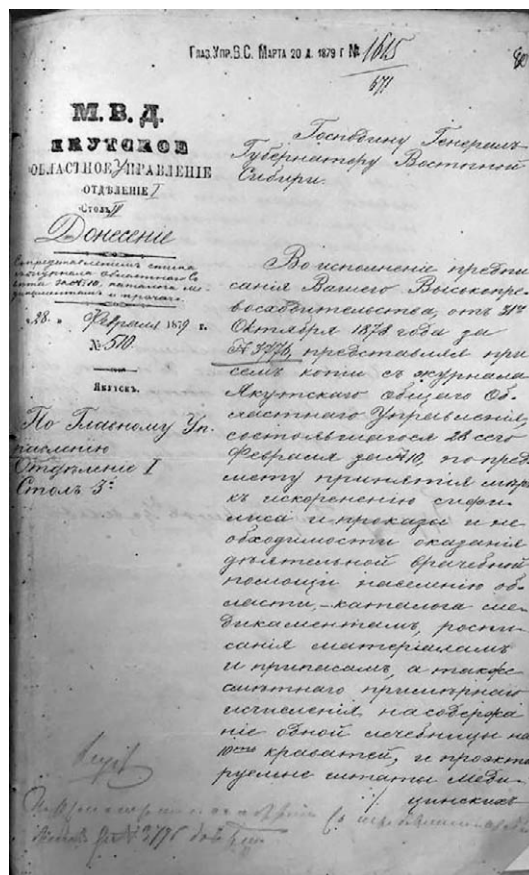 Глав.Упр.В.С. Марта 20 д. 1879 г № 1615
671
80
М.В.Д.
ЯКУТСКОЕ
ОБЛАСТНОЕ УПРАВЛЕНІЕ
ОТДѢЛЕНІЕ I
Столъ II
Донесеніе
съ представленіемъ списка
журнала областнаго со
вѣта за № 10, каталога ме
дикаментамъ и прочаго.
„28„ Февраля 1879 г.
№ 510.
Якутск.
По Главному Уп-
равленію
Отдѣленіе I
Столъ 3й
Господину Генералъ
Губернатору Восточной
Сибири.
Во исполненіе предпи
санія Вашего Высокопре-
восходительства, отъ 31го
Октября 1878 года за
№ 3776, представляя при
семъ копію съ журнала
Якутскаго общаго Об-
ластнаго Управленія,
состоявшагося 28 сего
Февраля за № 10, по пред
мету принятія мѣръ
къ искорененію сифи-
лиса и проказы и не-
обходимости оказанія
дѣятельной врачебной
помощи населенію об-
ласти, – каталога ме-
дикаментамъ, роспи-
санія матеріаламъ
и припасамъ, а также
смѣтнаго примѣрнаго
исчисленія на содержа
ніе одной лечебницы на
10ть кроватей, и проэкти
руемые штаты меди-
цинскихъ